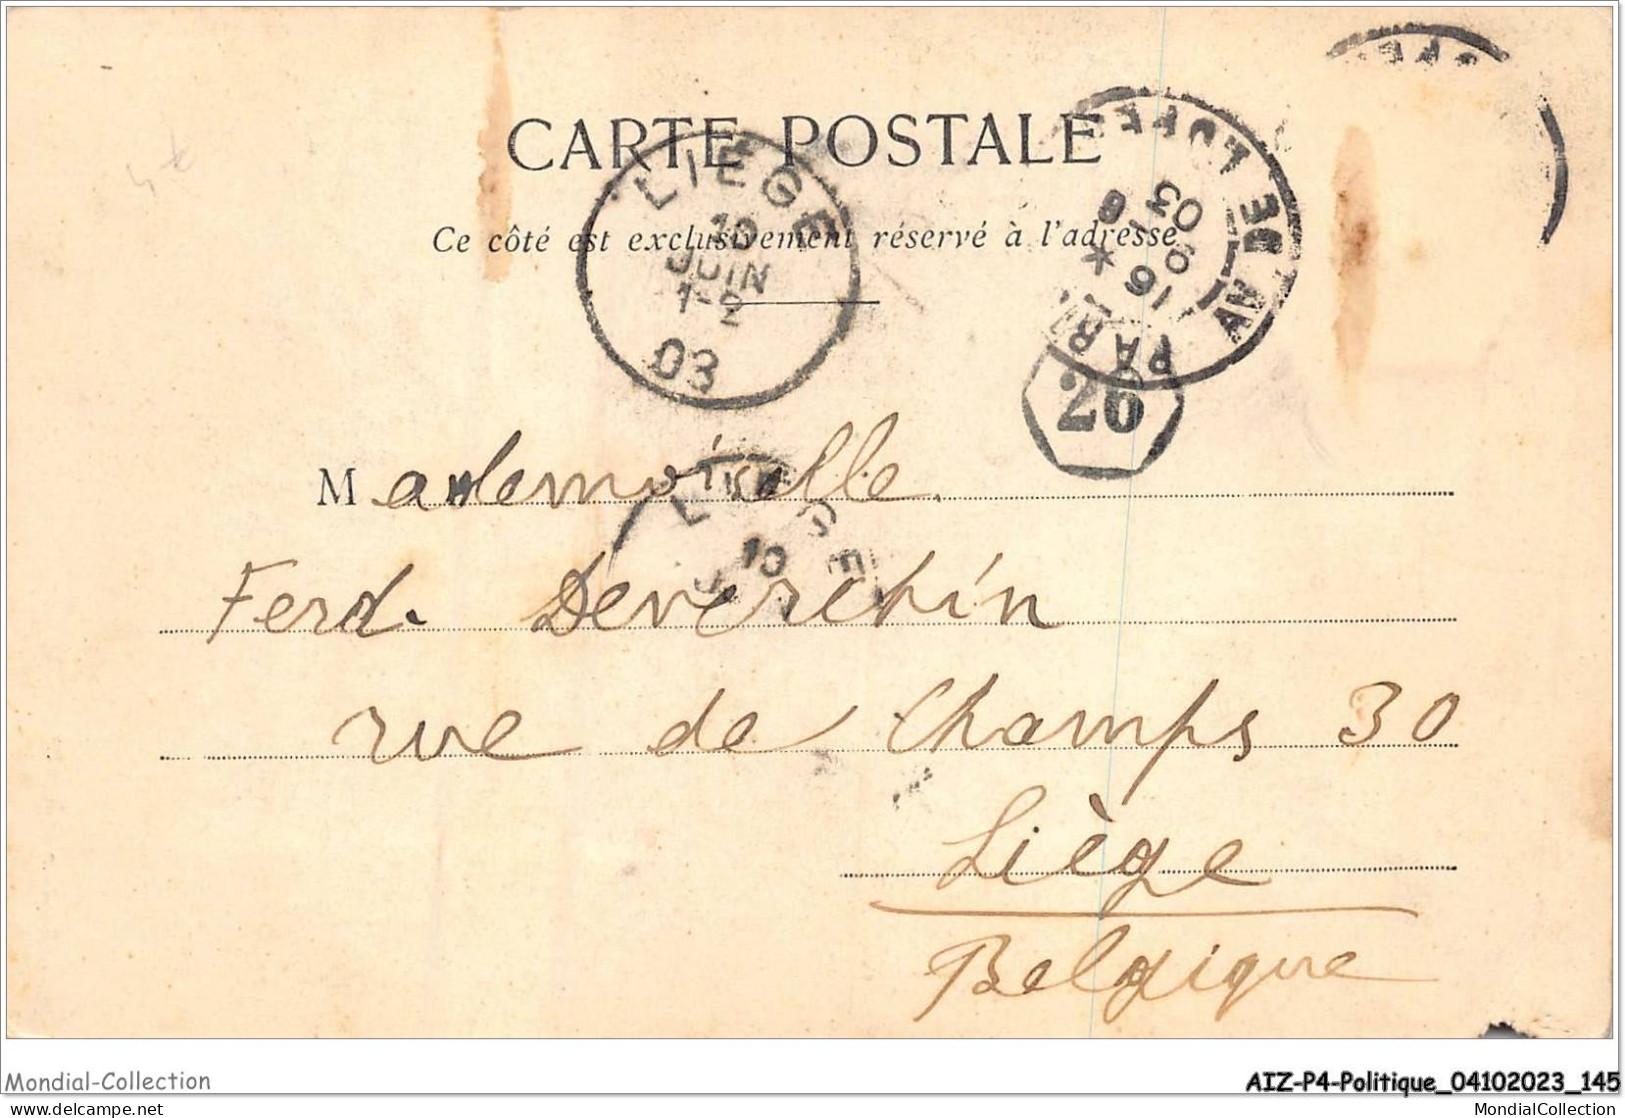 CARTE POSTALE
Ce côté est exclusivement réservé à l'adresse
LIEGE
10
JUIN
1-2
03
16 * 9-6
03
AV DE
70
Mademoiselle
LIEGE
10
Ferd. Deverchin
rue de Champs 30
Liège
Belgique
Mondial-Collection
AIZ-P4-Politique_04102023_145
delcampe.net
MondialCollection